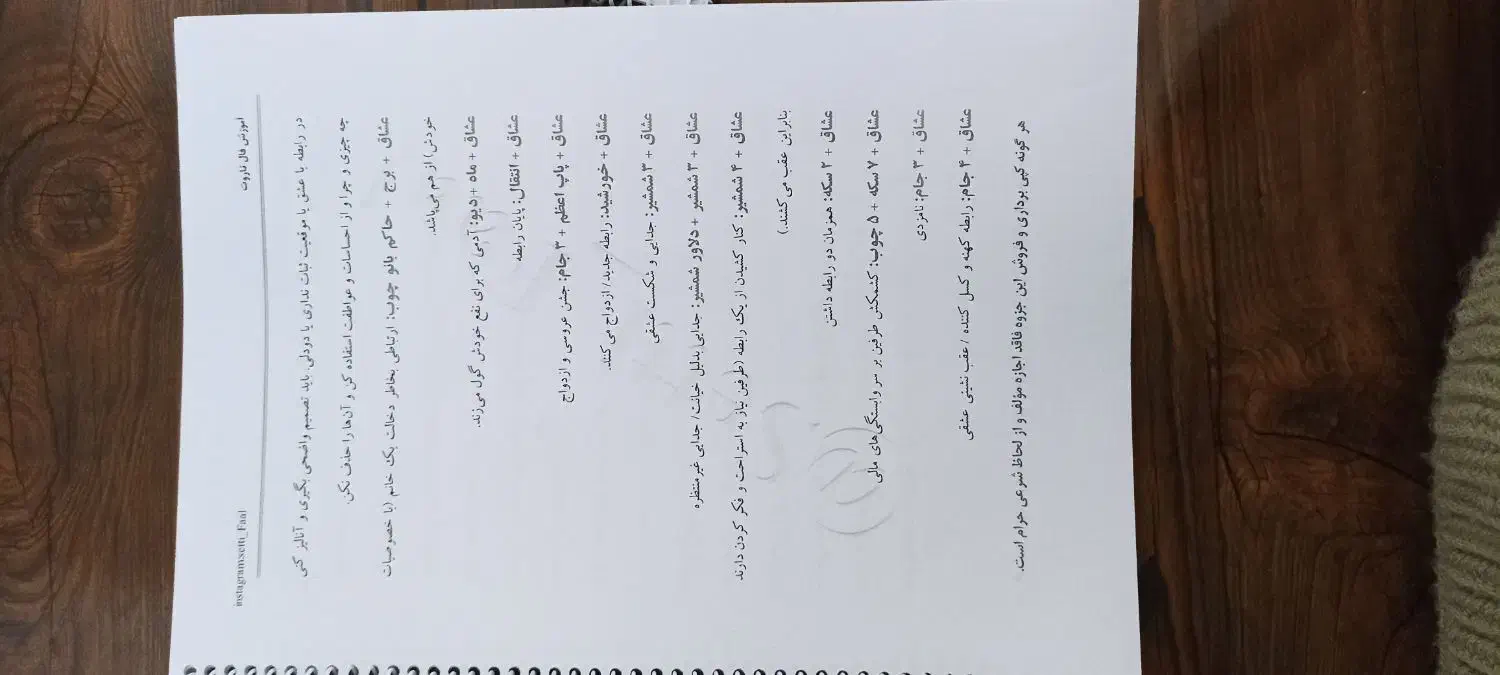 آموزش فال تاروت
instagram:sem_Faal
در رابطه با عشق یا موقعیت ثبات نداری یا دودلی. باید تصمیم واضحی بگیری و آنالیز کنی
چه چیزی و چرا و از احساسات و عواطفت استفاده کن و آن‌ها را حذف نکن.
عشاق + برج + حاکم بانو چوب: ارتباطی بخاطر دخالت یک خانم (با خصوصیات
خودش) از هم می‌پاشد.
عشاق + ماه + دیو: آدمی که برای نفع خودش گول می‌زند.
عشاق + انتقال: پایان رابطه
عشاق + پاپ اعظم + ۳ جام: جشن عروسی و ازدواج
عشاق + خورشید: رابطه جدید/ ازدواج می کنند.
عشاق + ۳ شمشیر: جدایی و شکست عشقی
عشاق + ۳ شمشیر + دلاور شمشیر: جدایی بدلیل خیانت/ جدایی غیر منتظره
عشاق + ۴ شمشیر: کنار کشیدن از یک رابطه (طرفین نیاز به استراحت و فکر کردن دارند
بنابراین عقب می کشند.)
عشاق + ۲ سکه: همزمان دو رابطه داشتن
عشاق + ۷ سکه + ۵ چوب: کشمکش طرفین بر سر وابستگی‌های مالی
عشاق + ۳ جام: نامزدی
عشاق + ۴ جام: رابطه کهنه و کسل کننده / عقب نشینی عشقی
هر گونه کپی برداری و فروش این جزوه فاقد اجازه مؤلف و از لحاظ شرعی حرام است.